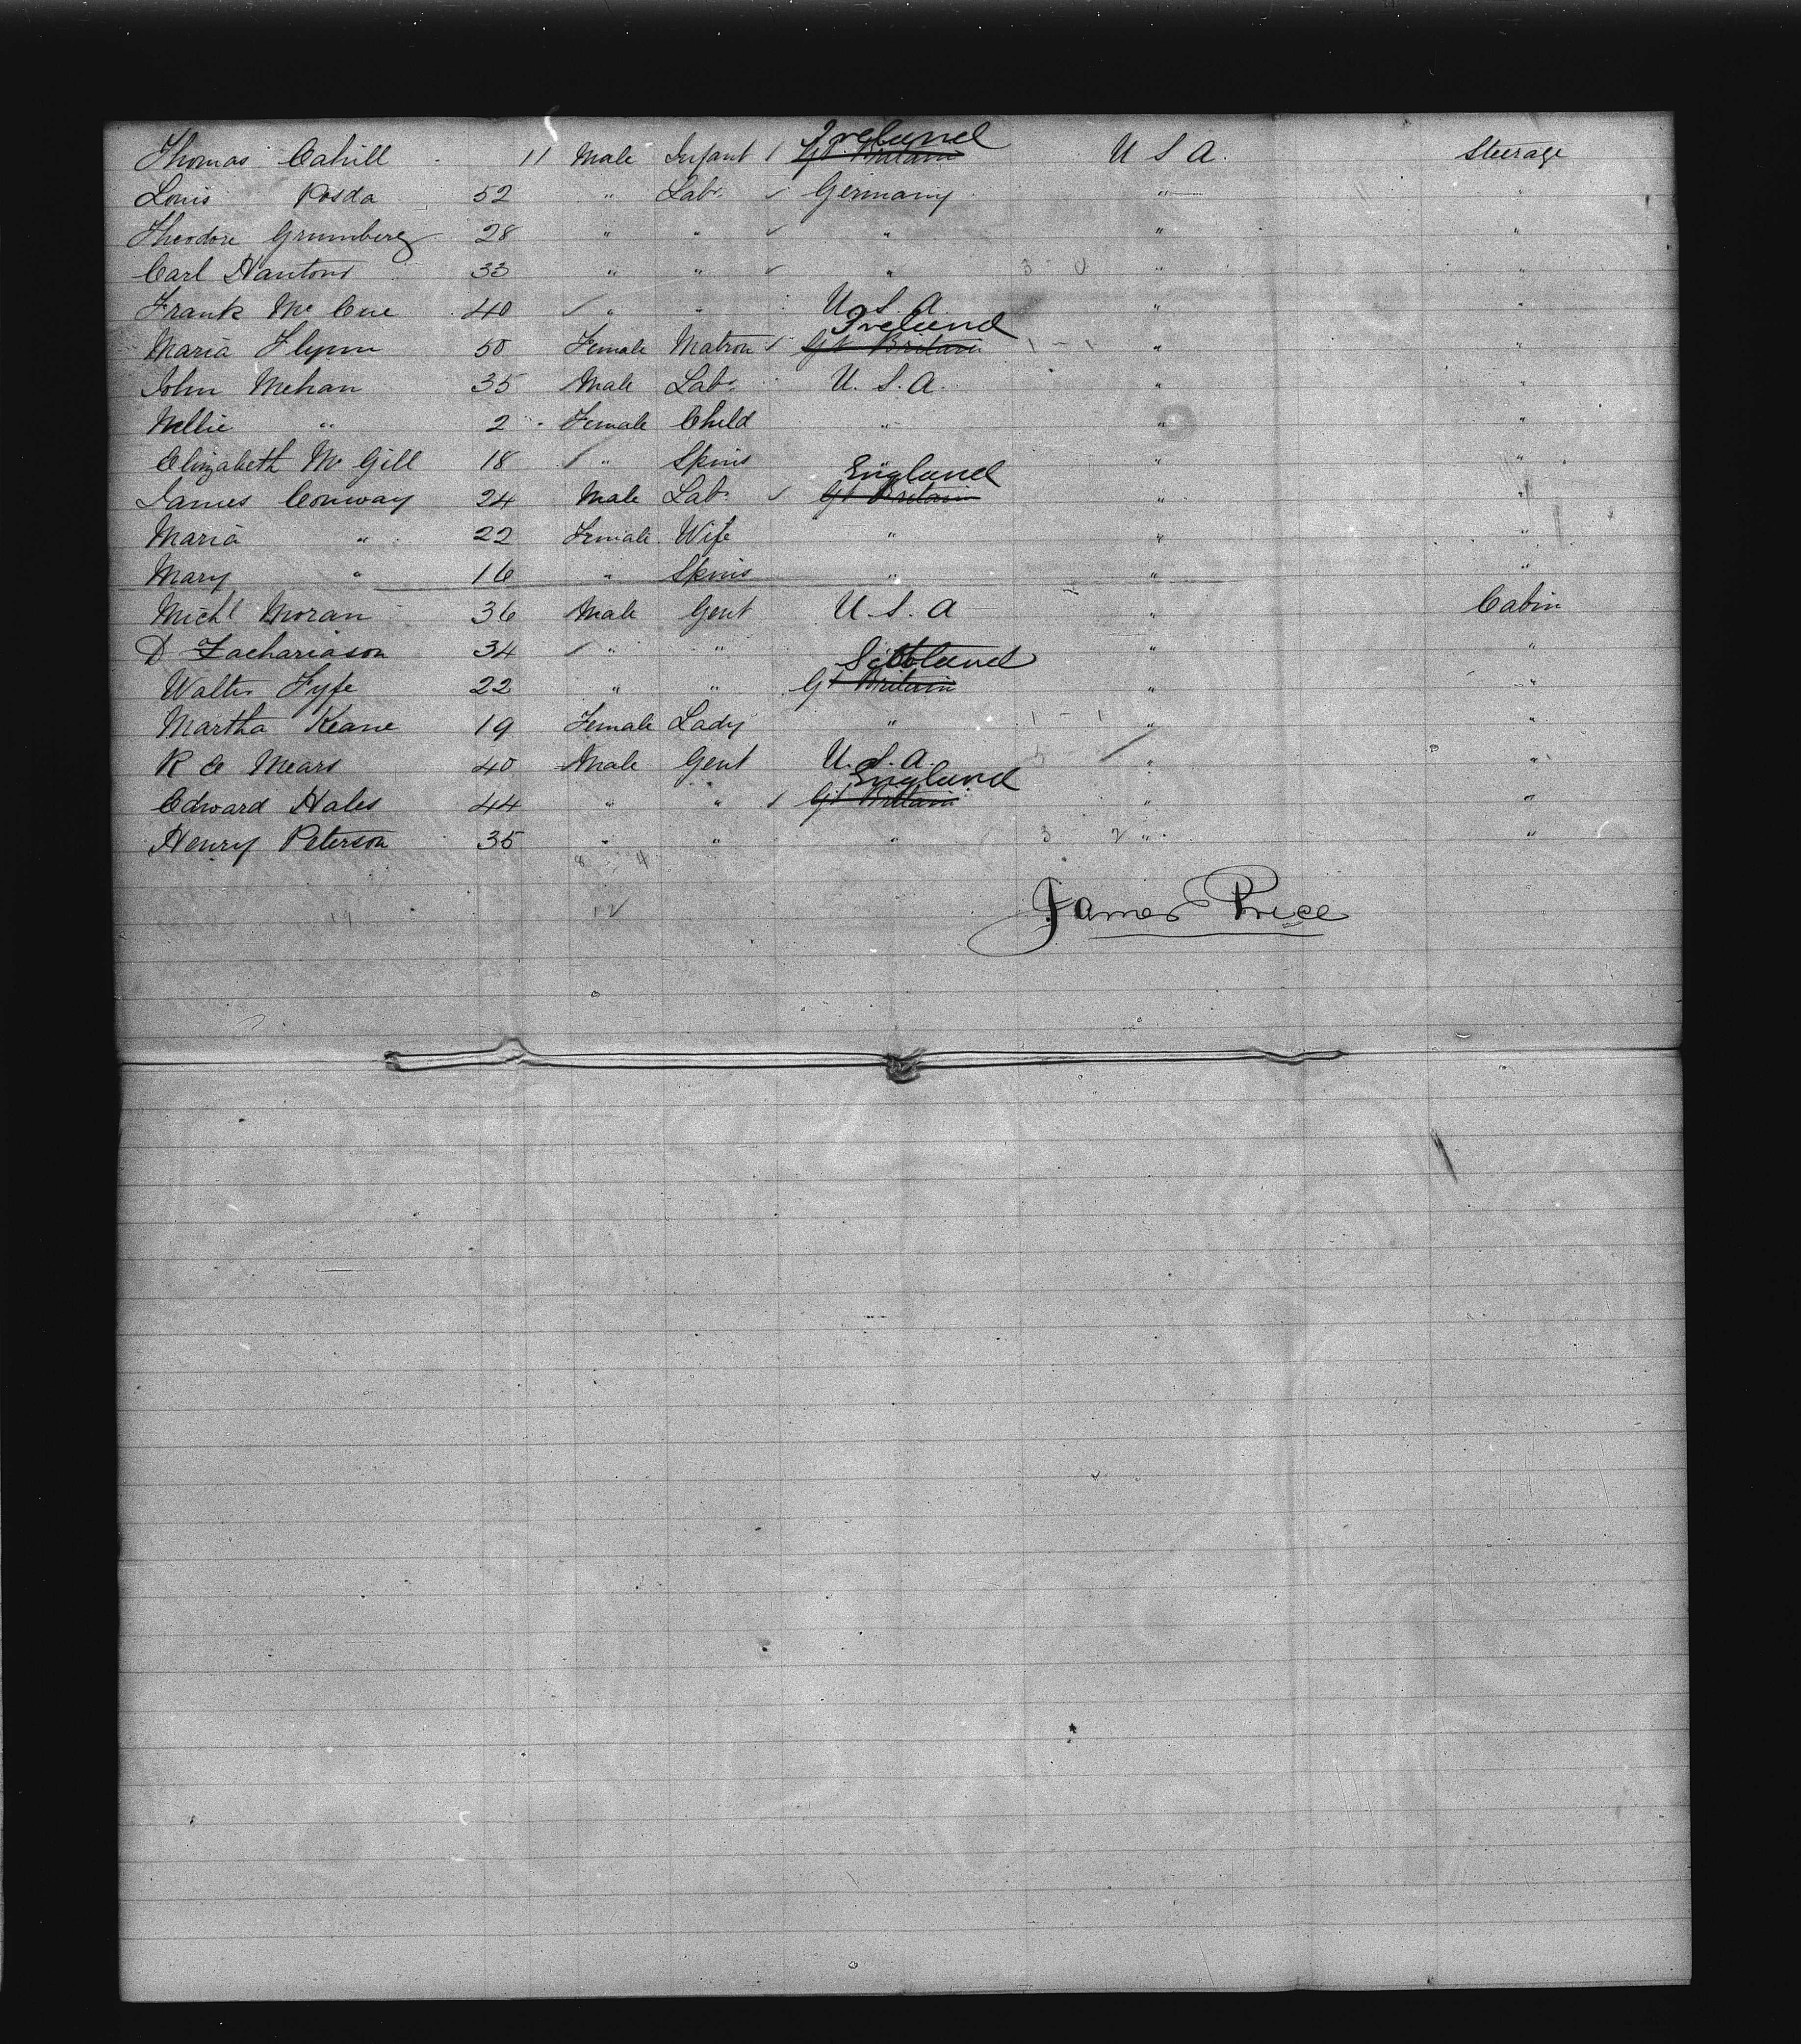 Thomas Cahill 11 Male Infant ✓ Ireland Gt Britain U S A. Steerage
Louis Posda 52 " Labr ✓ Germany " "
Theodore Grumberg 28 " " ✓ " " "
Carl Hantons 33 " " ✓ " 3 - 0 " "
Frank Mc Cue 40 ✓ " " U. S. A. " "
Maria Flynn 50 Female Matron ✓ Ireland Gt Britain 1 - 1 " "
John Mehan 35 Male Labr U. S. A. " "
Nellie " 2 Female Child " " "
Elizabeth Mc Gill 18 ✓ " Spins " "
James Conway 24 Male Labr ✓ England Gt Britain " "
Maria " 22 Female Wife " " "
Mary " 16 " Spins " " "
Michl Moran 36 Male Gent U. S. A " Cabin
D Zachariason 34 ✓ " " " "
Walter Fyfe 22 " " Scotland Gt Britain " "
Martha Keane 19 Female Lady " 1 - 1 " "
R Mears 40 Male Gent U. S. A. " "
Edward Hales 44 " " ✓ England Gt Britain " "
Henry Peterson 35 " " " 3 2 " "
8 4
19 12
James Price